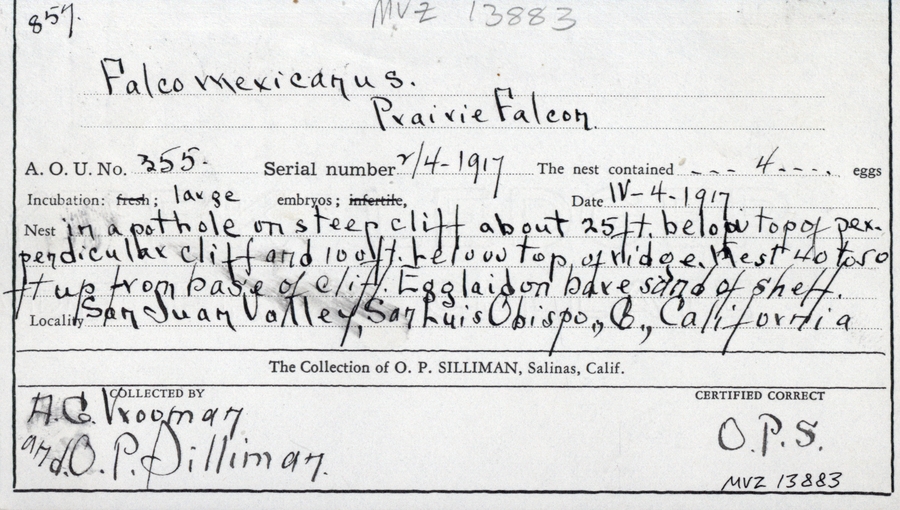 857.
MVZ 13883
Falco mexicanus.
Prairie Falcon.
A. O. U. No. 355. Serial number 2/4-1917 The nest contained - - - 4 - - - . eggs
Incubation: fresh; large embryos; infertile, Date IV-4-1917
Nest in a pothole on steep cliff about 25 ft. below top of per-
pendicular cliff and 100 ft. below top of ridge. Nest 40 to 50
ft up from base of cliff. Egg laid on bare sand of shelf.
Locality San Juan Valley, San Luis Obispo, C., California
The Collection of O. P. SILLIMAN, Salinas, Calif.
COLLECTED BY CERTIFIED CORRECT
A.G. Vrooman
and O. P. Silliman. O.P.S.
MVZ 13883